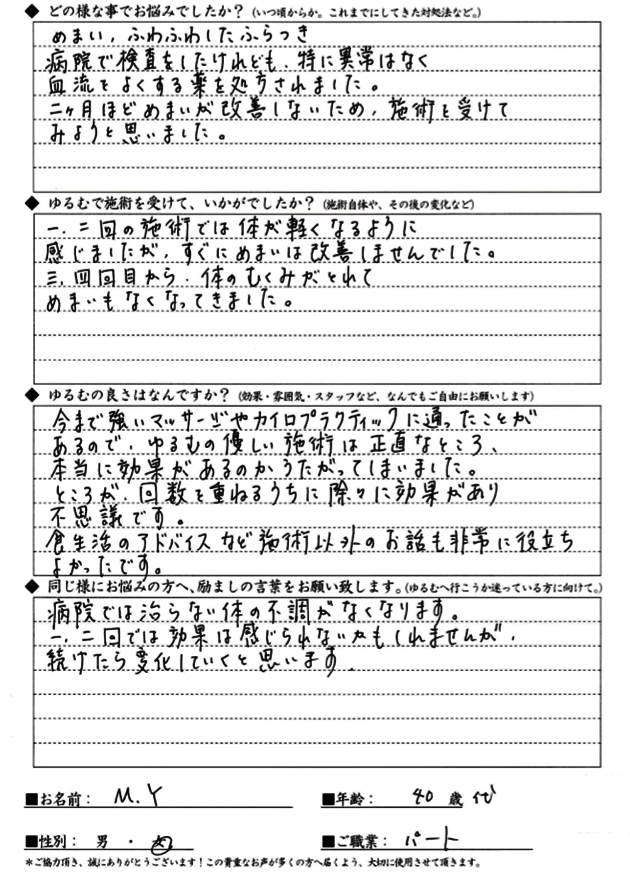 ◆ どの様な事でお悩みでしたか？（いつ頃からか。これまでにしてきた対処法など。）
めまい，ふわふわしたふらつき
病院で検査をしたけれども，特に異常はなく
血流をよくする薬を処方されました。
二ヶ月ほどめまいが改善しないため，施術を受けて
みようと思いました。
◆ ゆるむで施術を受けて、いかがでしたか？（施術自体や、その後の変化など）
一．二回の施術では体が軽くなるように
感じましたが，すぐにめまいは改善しませんでした。
三．四回目から，体のむくみがとれて
めまいもなくなってきました。
◆ ゆるむの良さはなんですか？（効果・雰囲気・スタッフなど、なんでもご自由にお願いします）
今まで強いマッサージやカイロプラクティックに通ったことが
あるので，ゆるむの優しい施術は正直なところ、
本当に効果があるのかうたがってしまいました。
ところが，回数を重ねるうちに除々に効果があり
不思議です。
食生活のアドバイスなど施術以外のお話も非常に役立ち
よかったです。
◆ 同じ様にお悩みの方へ、励ましの言葉をお願い致します。（ゆるむへ行こうか迷っている方に向けて。）
病院では治らない体の不調がなくなります。
一．二回では効果は感じられないかもしれませんが，
続けたら変化していくと思います．
■お名前： M.Y ■年齢： 40 歳 代
■性別： 男 ・ 女 ■ご職業： パート
＊ご協力頂き、誠にありがとうございます！この貴重なお声が多くの方へ届くよう、大切に使用させて頂きます。